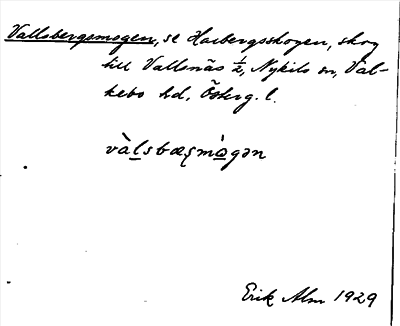 Vallsbergsmogen, se Harbergsskogen, skog
till Vallsnäs ½, Nykils sn, Val-
kebo hd, Österg. l.
vàlsbæʂmògən
Erik Alm 1929